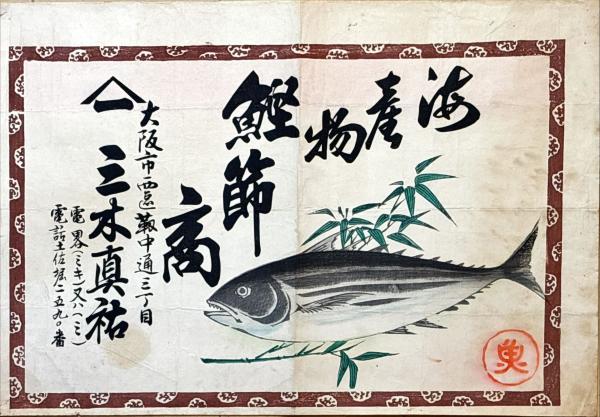 海産物
鰹節商
大阪市西區靱中通三丁目
三木真祐
電畧(ミキ)又ハ(ミ)
電話土佐堀二五九〇番